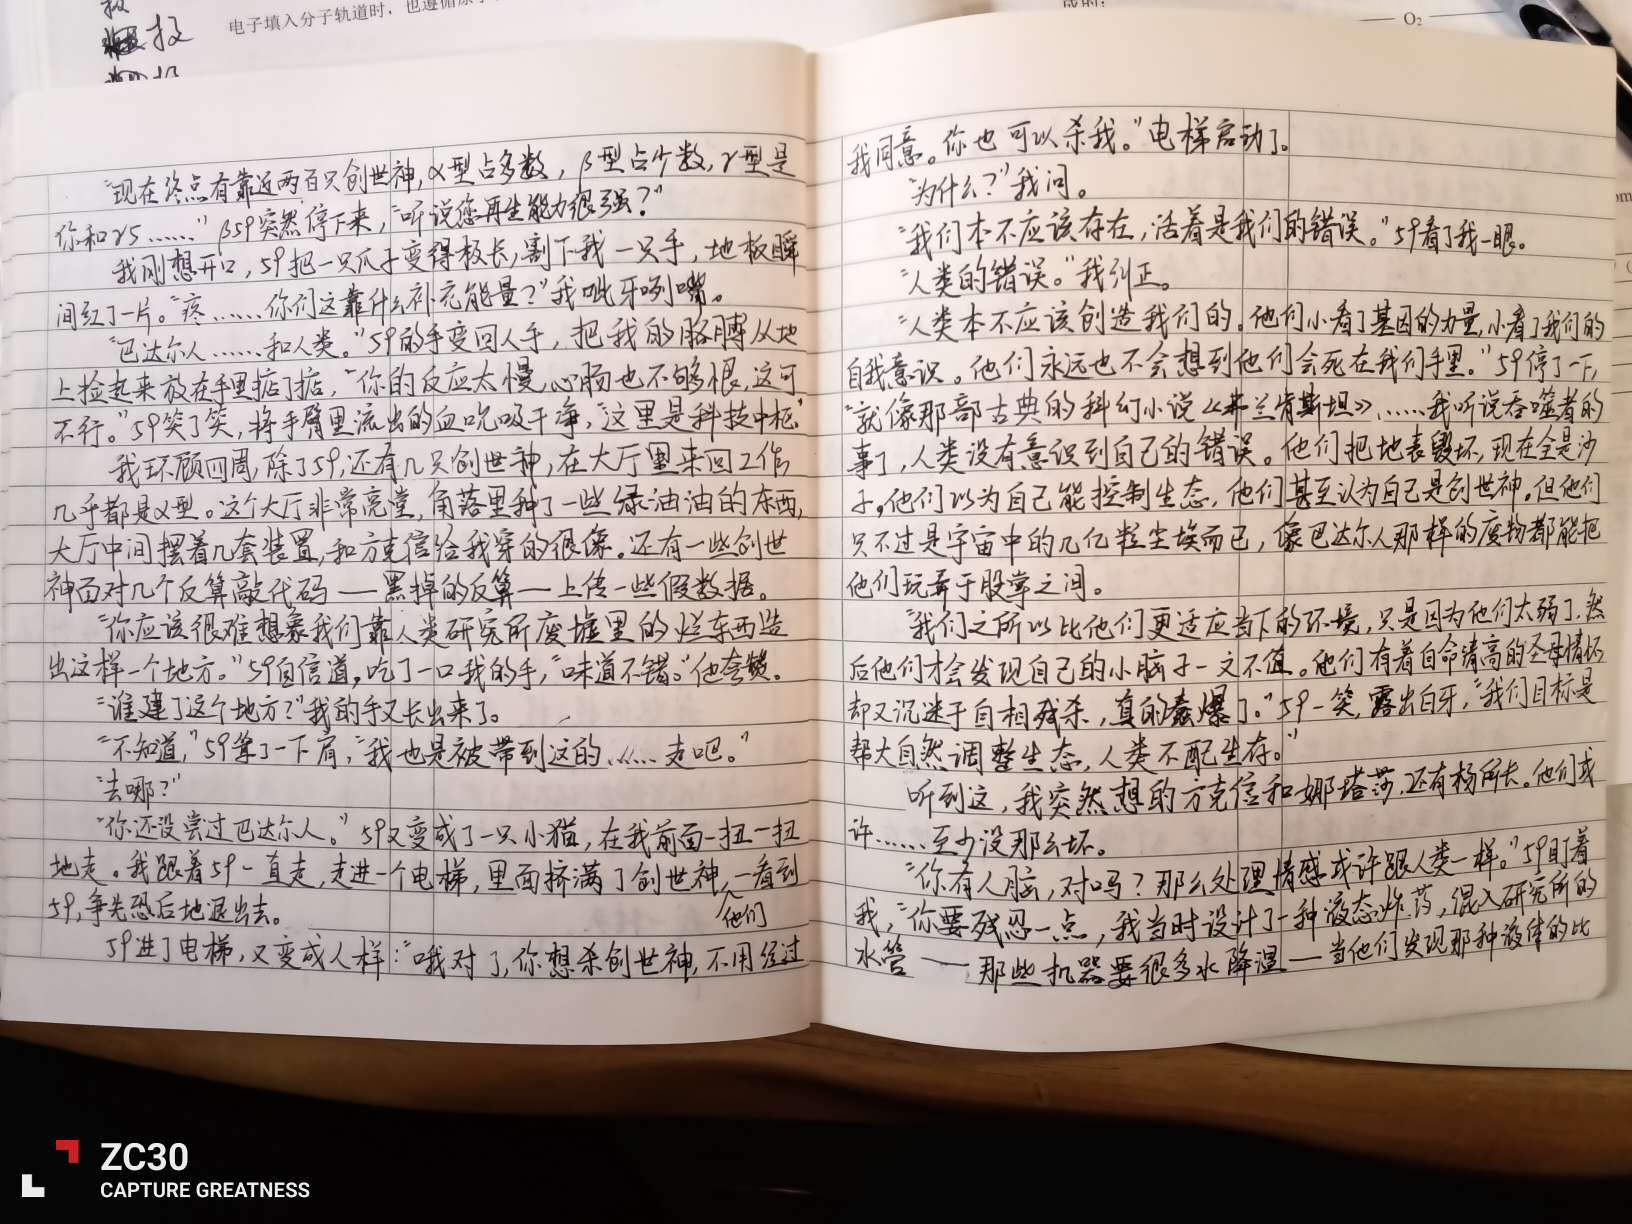 电子填入分子轨道时，也遵循原
成的：
O₂
投
"现在终点有靠近两百只创世神，α型占多数，β型占少数，γ型是
你和γ5……"β59突然停下来，"听说您再生能力很强？"
我刚想开口，59把一只爪子变得极长，割下我一只手，地板瞬
间红了一片。"疼……你们这靠什么补充能量？"我呲牙咧嘴。
"巴达尔人……和人类。"59的手变回人手，把我的胳膊从地
上捡起来放在手里掂了掂，"你的反应太慢，心肠也不够恨，这可
不行。"59笑了笑，将手臂里流出的血吮吸干净，"这里是科技中枢"
我环顾四周，除了59，还有几只创世神，在大厅里来回工作
几乎都是α型。这个大厅非常亮堂，角落里种了一些绿油油的东西，
大厅中间摆着几套装置，和方克信给我穿的很像。还有一些创世
神面对几个反算敲代码——黑掉的反算——上传一些假数据。
"你应该很难想象我们靠人类研究所废墟里的烂东西造
出这样一个地方。"59自信道，吃了一口我的手，"味道不错。"他夸赞。
"谁建了这个地方？"我的手又长出来了。
"不知道，"59耸了一下肩，"我也是被带到这的……走吧。"
"去哪？"
"你还没尝过巴达尔人。"59又变成了一只小猫，在我前面一扭一扭
地走。我跟着59一直走，走进一个电梯，里面挤满了创世神，他们一看到
59，争先恐后地退出去。
59进了电梯，又变成人样："哦对了，你想杀创世神，不用经过
我同意。你也可以杀我。"电梯启动了。
"为什么？"我问。
"我们本不应该存在，活着是我们的错误。"59看了我一眼。
"人类的错误。"我纠正。
"人类本不应该创造我们的。他们小看了基因的力量，小看了我们的
自我意识。他们永远也不会想到他们会死在我们手里。"59停了一下，
"就像那部古典的科幻小说《弗兰肯斯坦》……我听说吞噬者的
事了，人类没有意识到自己的错误。他们把地表毁坏，现在全是沙
子。他们以为自己能控制生态，他们甚至认为自己是创世神。但他们
只不过是宇宙中的几亿粒尘埃而已，像巴达尔人那样的废物都能把
他们玩弄于股掌之间。
"我们之所以比他们更适应当下的环境，只是因为他们太弱了，然
后他们才会发现自己的小脑子一文不值。他们有着自命清高的圣母情怀
却又沉迷于自相残杀，真的蠢爆了。"59一笑，露出白牙，"我们目标是
帮大自然调整生态，人类不配生存。"
听到这，我突然想的方克信和娜塔莎，还有杨所长。他们或
许……至少没那么坏。
"你有人脑，对吗？那么处理情感或许跟人类一样。"59盯着
我，"你要残忍一点，我当时设计了一种液态炸药，混入研究所的
水管——那些机器要很多水降温——当他们发现那种液体的比
ZC30
CAPTURE GREATNESS